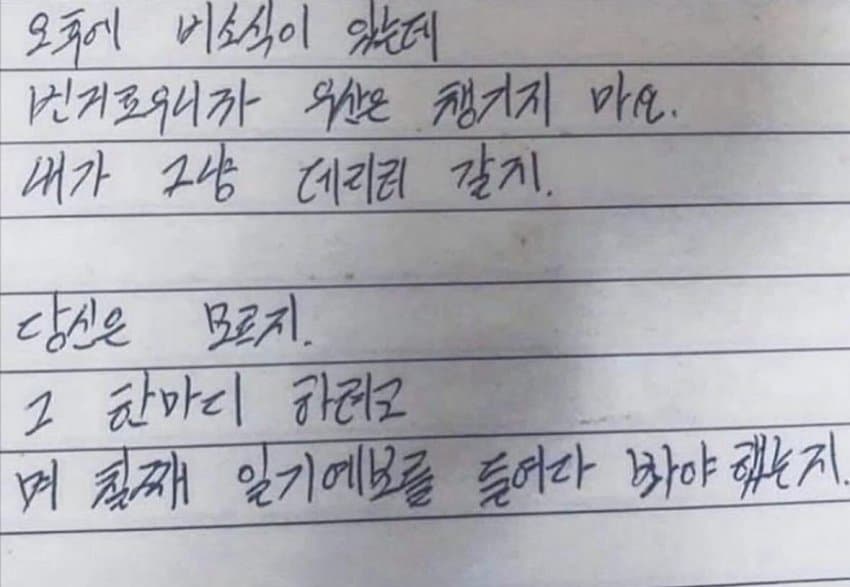 오후에 비소식이 있는데
번거로우니까 우산은 챙기지 마요.
내가 그냥 데리러 갈지.
당신은 모르지.
그 한마디 하려고
며 칠째 일기예보를 들여다 봐야 했는지.